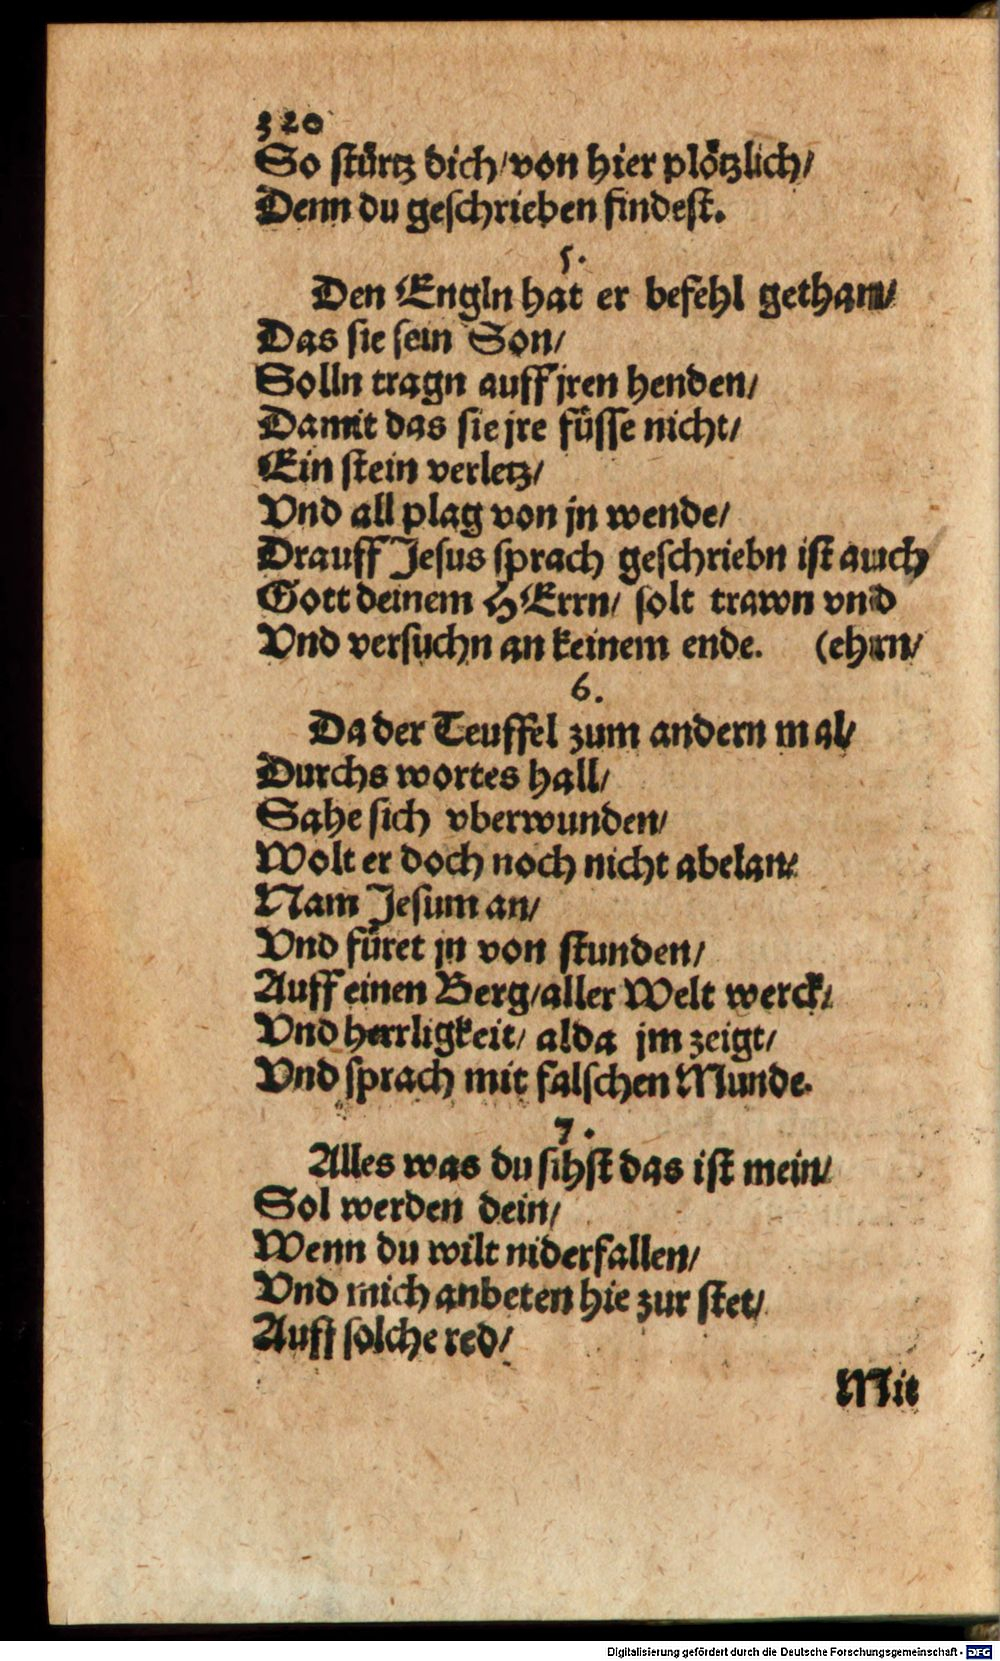 320
So stürtz dich/von hier plötzlich/
Denn du geschrieben findest.
5.
Den Engln hat er befehl gethan/
Das sie sein Son/
Solln tragn auff jren henden/
Damit das sie jre füsse nicht/
Ein stein verletz/
Vnd all plag von jn wende/
Drauff Jesus sprach geschriebn ist auch
Gott deinem HErrn/ solt trawn vnd
Vnd versuchn an keinem ende. (ehrn/
6.
Da der Teuffel zum andern mal/
Durchs wortes hall/
Sahe sich vberwunden/
Wolt er doch noch nicht abelan/
Nam Jesum an/
Vnd füret jn von stunden/
Auff einen Berg/aller Welt werck/
Vnd herrligkeit/ alda jm zeigt/
Vnd sprach mit falschen Munde.
7.
Alles was du sihst das ist mein/
Sol werden dein/
Wenn du wilt niderfallen/
Vnd mich anbeten hie zur stet/
Auff solche red/
Mit
Digitalisierung gefördert durch die Deutsche Forschungsgemeinschaft - DFG